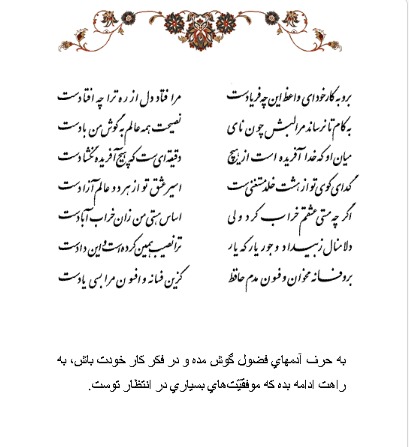 برو به کار خود ای واعظ این چه فریادست مرا فتاد دل از ره ترا چه افتادست
به کام تا نرساند مرا لبش چون نای نصیحت همه عالم به گوش من بادست
میان او که خدا آفریده است از هیچ دقیقه‌ای ست که هیچ آفریده نگشادست
گدای کوی تو از هشت خلد مستغنی ست اسیر عشق تو از هر دو عالم آزادست
اگر چه مستی عشقم خراب کرد ولی اساس هستی من زان خراب آبادست
دلا منال ز بیداد و جور یار که یار ترا نصیب همین کرده است و این دادست
برو فسانه مخوان و فسون مدم حافظ کزین فسانه و افسون مرا بسی یادست
به حرف آدمهاي فضول گوش مده و در فکر کار خودت باش، به
راهت ادامه بده که موفقیّت‌هاي بسیاري در انتظار توست.